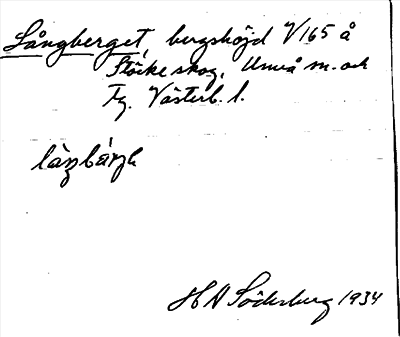 Långberget, bergshöjd V165 å
Stöcke skog, Umeå m. och
Fg. Västerb. l.
H A Söderberg 1934